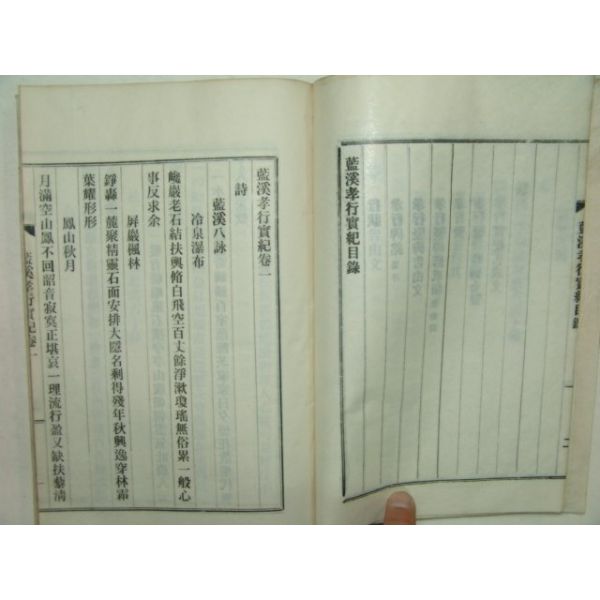 藍溪孝行實紀目錄
藍溪孝行實紀目錄
二
藍溪孝行實紀卷一
詩
藍溪八詠
冷泉瀑布
巉巖老石結扶興俯白飛空百丈餘淨漱瓊瑤無俗累一般心
事反求余
屛巖楓林
錚轟一麓聚精靈石面安排大隱名剩得殘年秋興逸穿林霜
葉耀形形
鳳山秋月
月滿空山鳳不回韶音寂寞正堪哀一理流行盈又缺扶藜淸
藍溪孝行實紀卷一
一